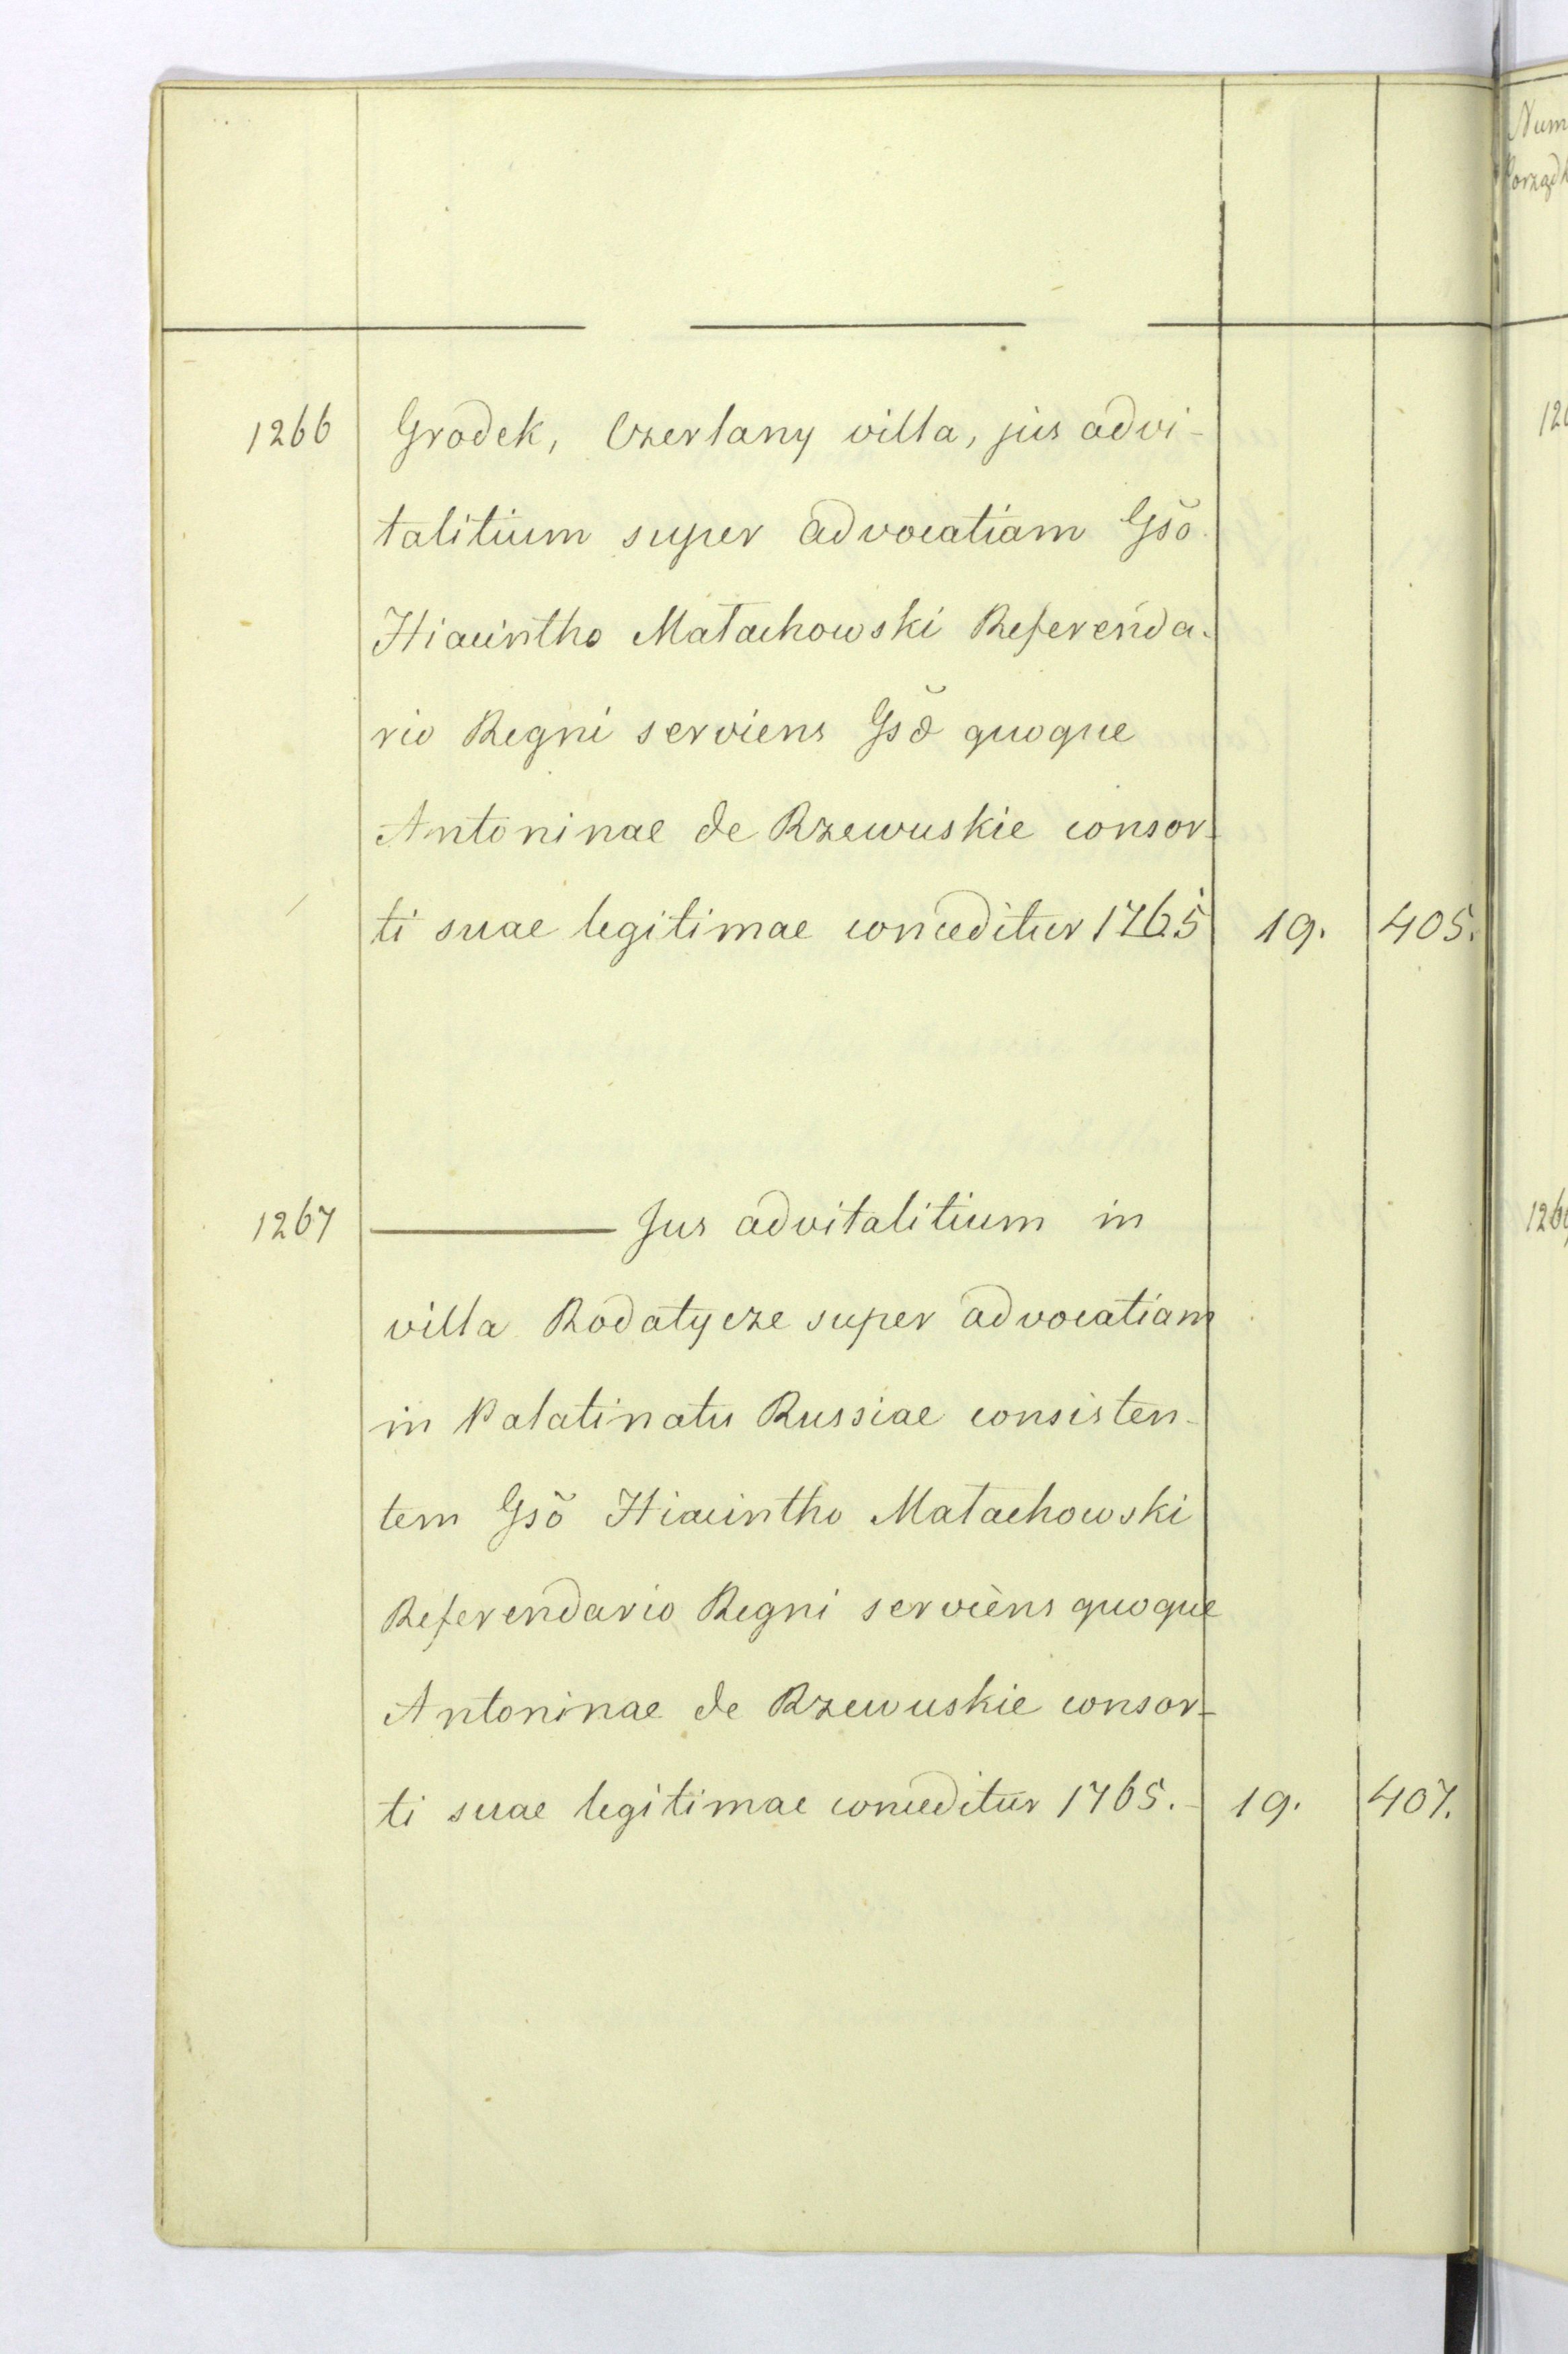 1266 Grodek, Czerlany villa, jus advi-
talitium super advocatiam Gsõ
Hiacintho Małachowski Referenda-
rio Regni serviens Gsõ quoque
Antoninae de Rzewuskie consor-
ti suae legitimae conceditur 1765 19. 405.
1267 ——— Jus advitalitium in
villa Rodatycze super advocatiam
in Palatinatu Russiae consisten-
tem Gsõ Hiacintho Małachowski
Referendario Regni serviens quoque
Antoninae de Rzewuskie consor-
ti suae legitimae conceditur 1765. 19. 407.